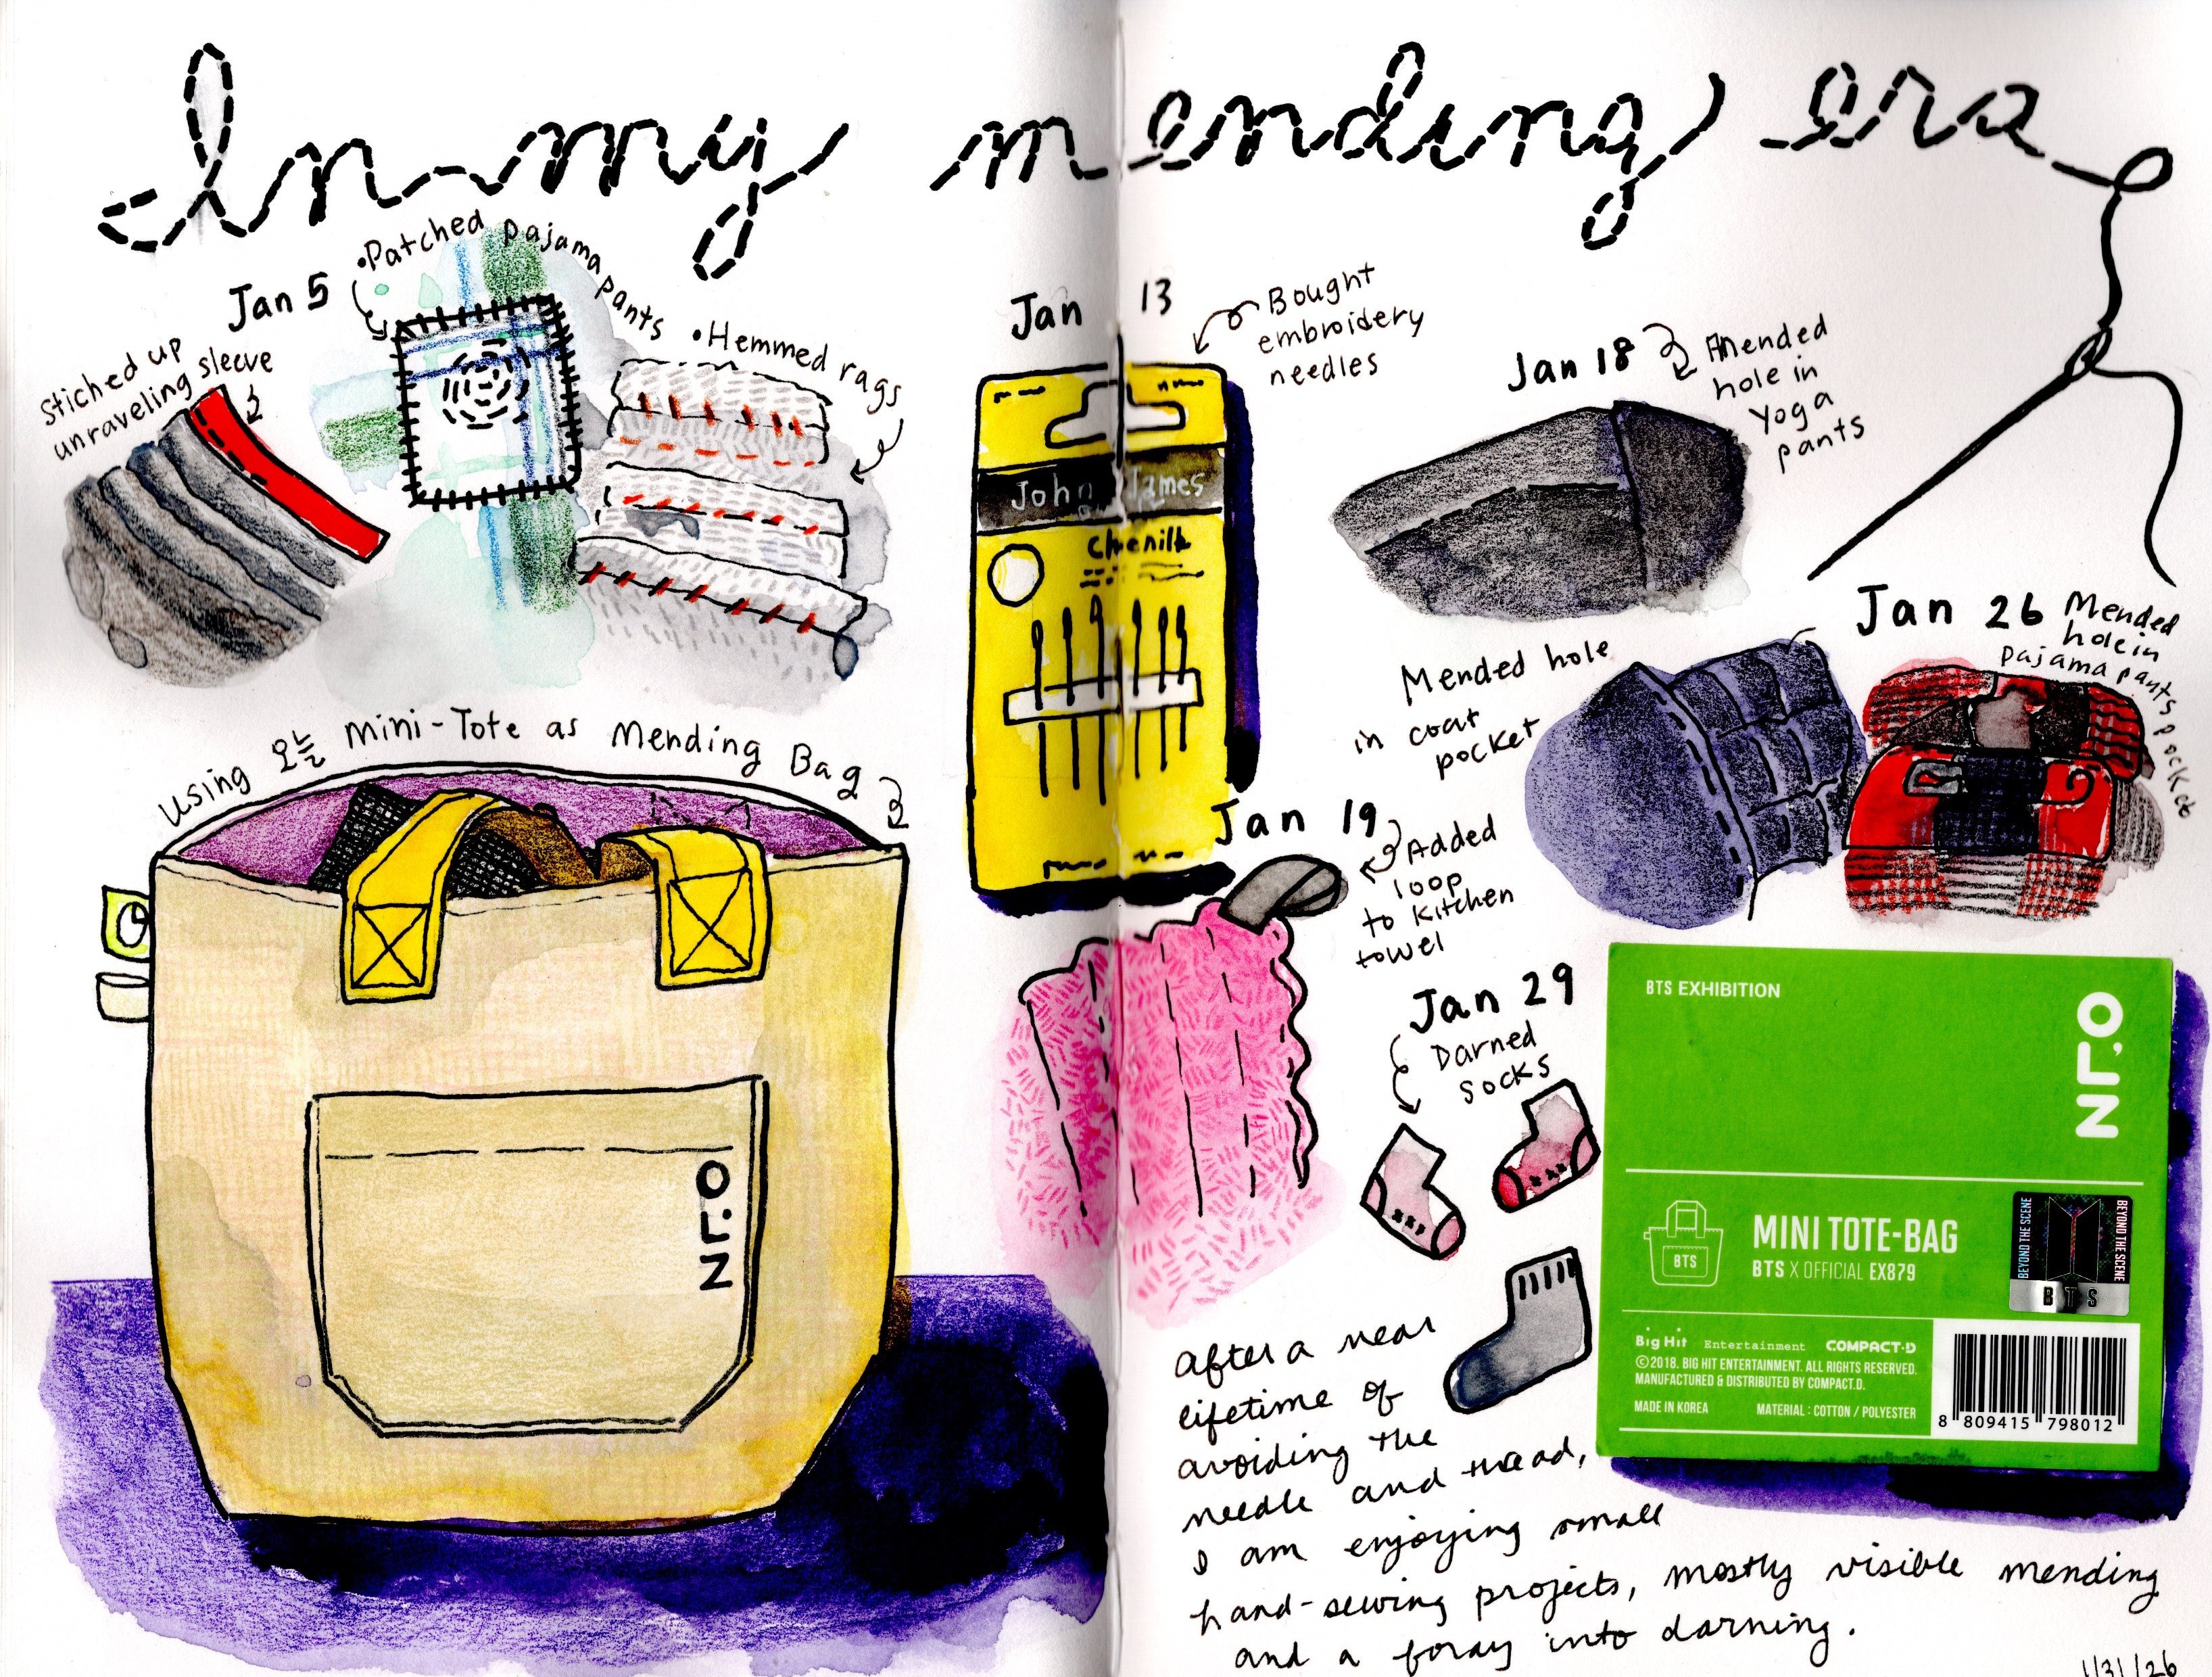 In my mending era
Jan 5
Stiched up
unraveling sleeve
•Patched pajama pants
•Hemmed rags
Jan 13
Bought
embroidery
needles
John James
Chenille
Jan 18
Mended
hole in
yoga
pants
Jan 26
Mended
hole in
pajama pants pocket
Mended hole
in coat
pocket
using 오늘 Mini-Tote as Mending Bag
Jan 19
Added
loop
to kitchen
towel
Jan 29
Darned
socks
BTS EXHIBITION
MINI TOTE-BAG
BTS
BTS X OFFICIAL EX879
BEYOND THE SCENE
BEYOND THE SCENE
BTS
Big Hit Entertainment COMPACT·D
©2018. BIG HIT ENTERTAINMENT. ALL RIGHTS RESERVED.
MANUFACTURED & DISTRIBUTED BY COMPACT.D.
MADE IN KOREA MATERIAL : COTTON / POLYESTER
8 809415 798012
after a near
lifetime of
avoiding the
needle and thread,
I am enjoying small
hand-sewing projects, mostly visible mending
and a foray into darning.
1/31/26